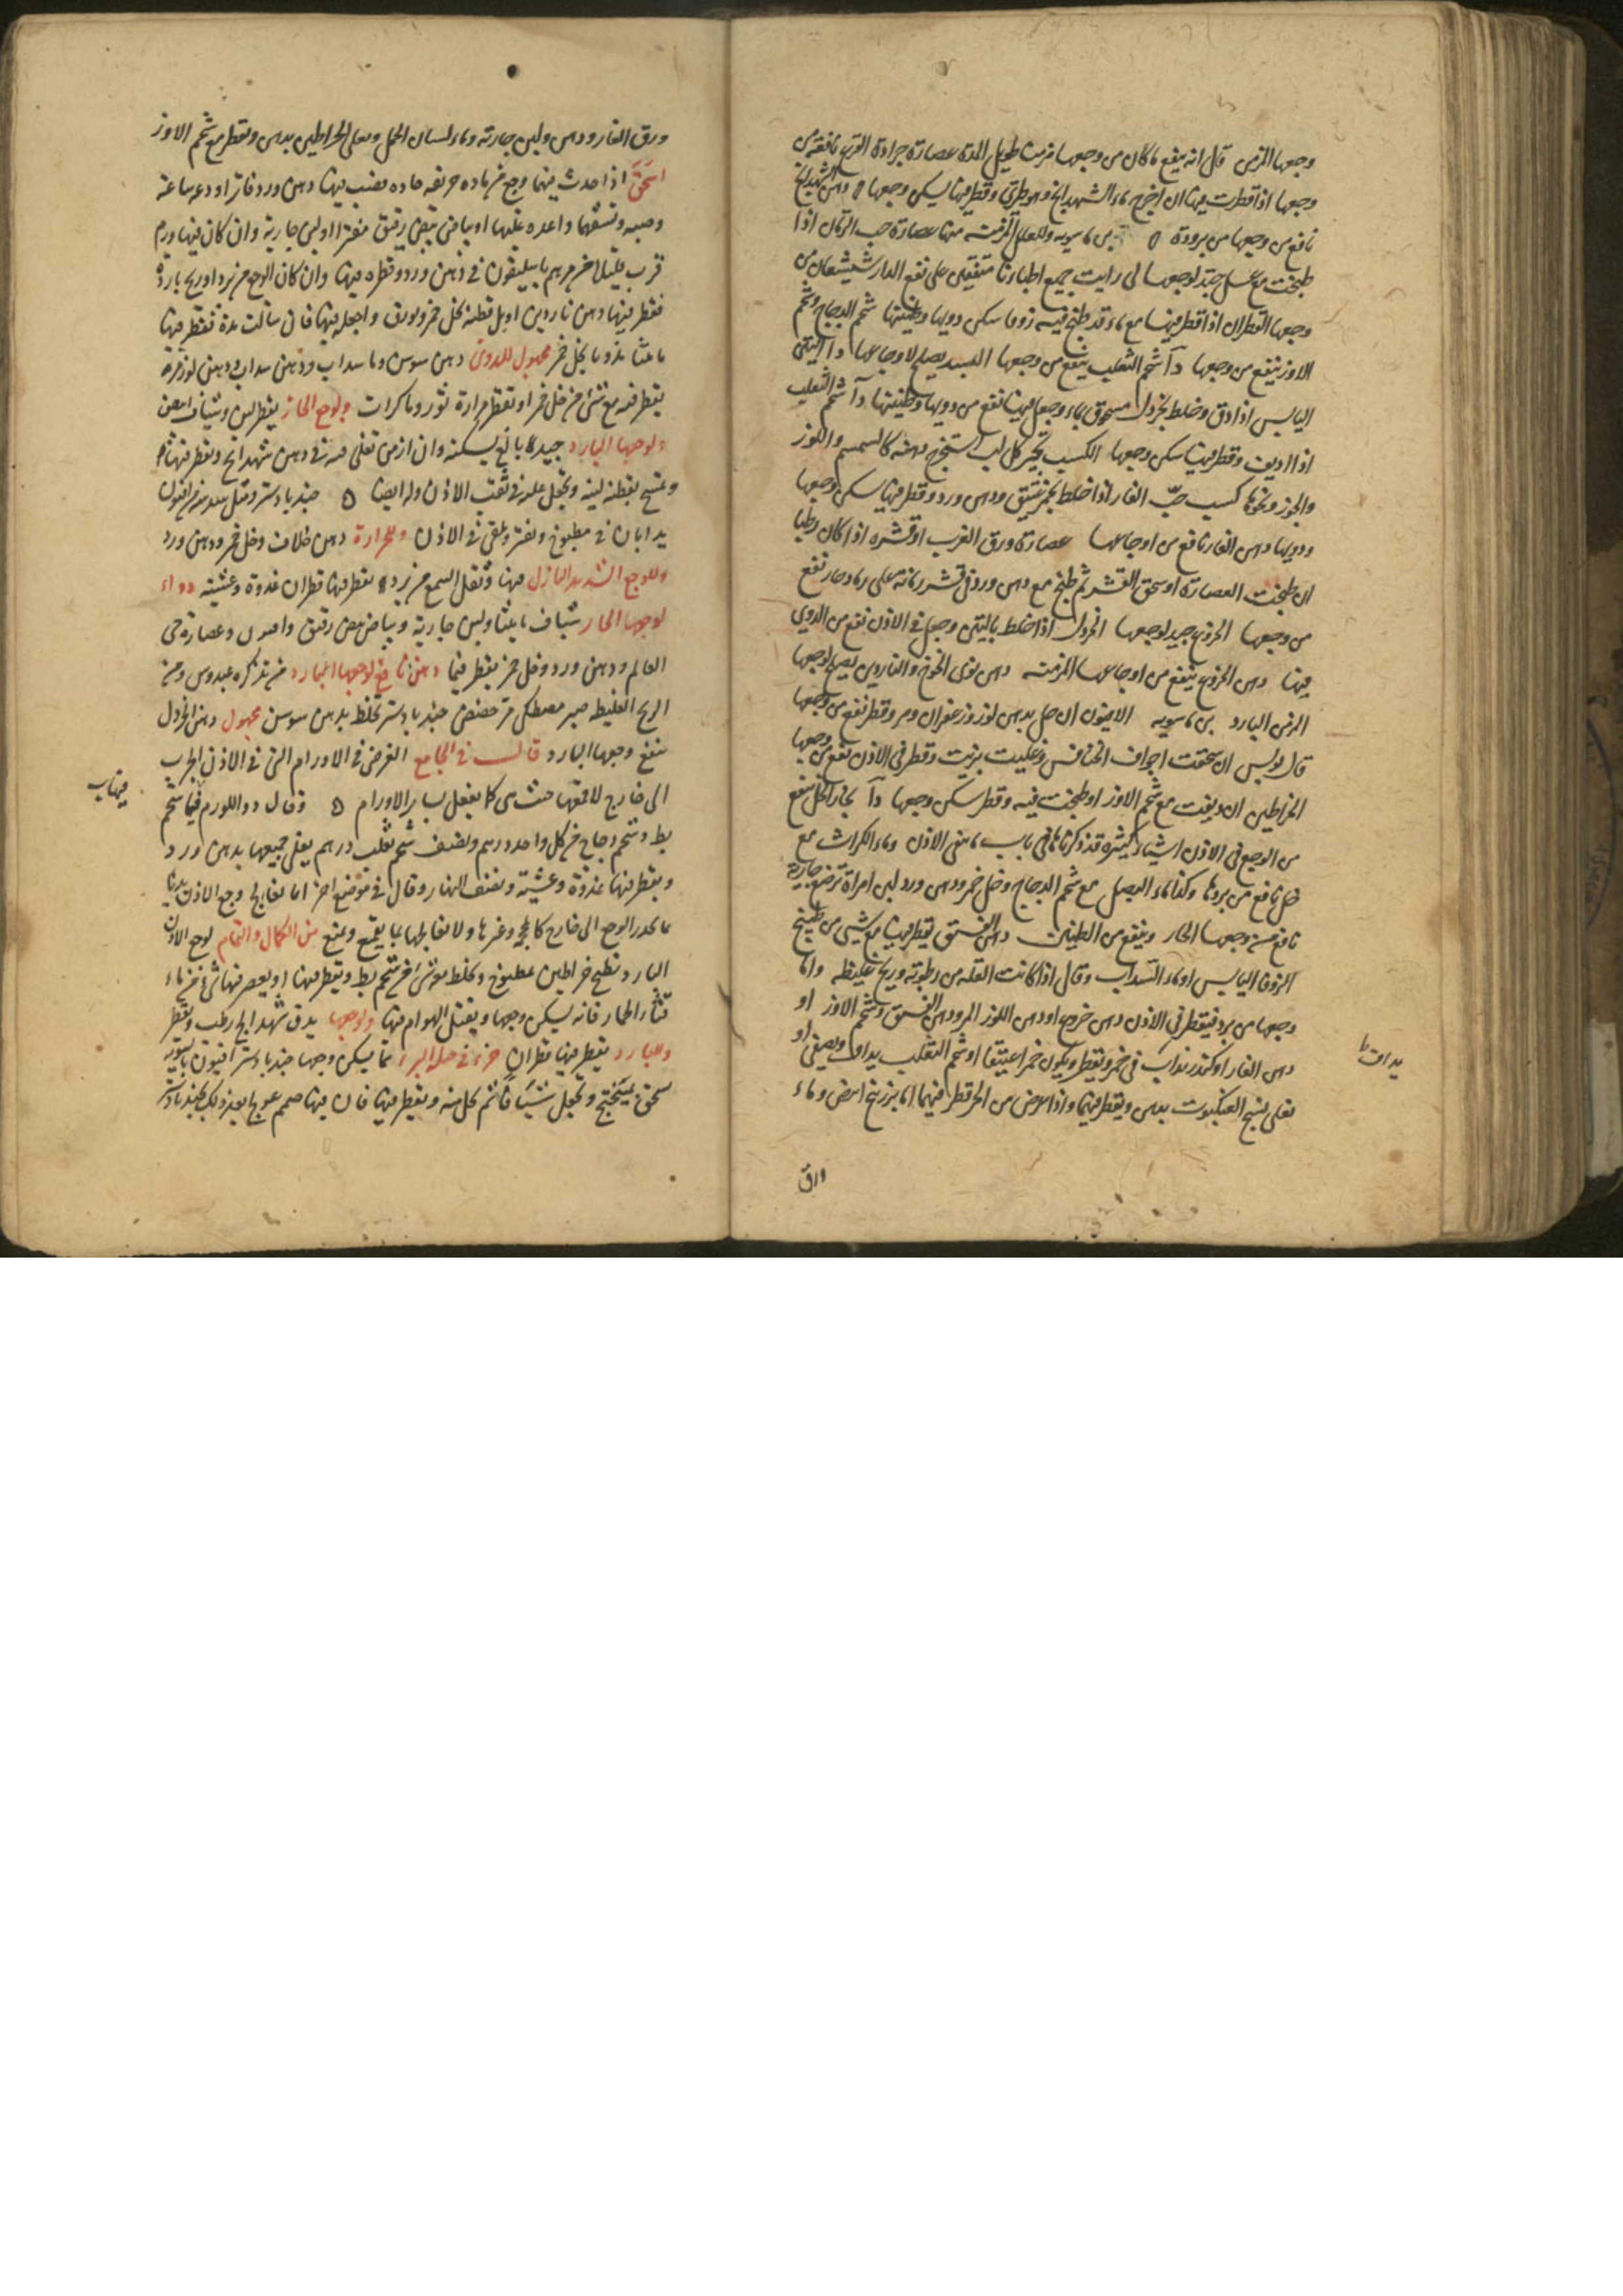 وجعها المزمن قال انه ينفع ما كان من وجعها مزمنا طويل المدة عصارة جرادة القرع نافعة من
وجعها اذا قطرت فيها ان اخرج ماء الشهدانج وهو طري وقطر فيها يسكن وجعها دهن الشهدانج
نافع من وجعها من برودة ابن ماسويه وللعلل المزمنة منها عصارة حب الرمان اذا
طبخت مع عسل جيد لوجعها لى رايت جميع اطبائنا متفقين على نفع الدارشيشعان من
وجعها القطران اذا قطر فيها مع ماء قد طبخ فيه زوفا سكن دويها وطنينها شحم الدجاج وشحم
الاوز ينفع من وجعها د شحم الثعلب ينفع من وجعها السبد يصلح لاوجاعها د التين
اليابس اذا دق وخلط بخردل مسحوق بماء وجعل فيها نفع من دويها وطنينها د شحم الثعلب
اذا اذيب وقطر فيها سكن وجعها الكسب ثجير كل لب استخرج دهنه كالسمسم واللوز
والجوز ونحوها كسب حب الغار اذا خلط بخمر عتيق ودهن ورد وقطر فيها سكن وجعها
ودويها دهن الغار نافع من اوجاعها عصارة ورق الغرب او قشره اذا كان رطبا
ان طبخت العصارة او سحق القشر ثم طبخ مع دهن ورد في قشر رمانة على رماد حار نفع
من وجعها الخروع جيد لوجعها الخردل اذا خلط بالتين وجعل في الاذن نفع من الدوي
فيها دهن الخروع ينفع من اوجاعها المزمنة دهن نوى الخوخ والناردين يصلح لوجعها
المزمن البارد بن ماسويه الافيون ان حل بدهن لوز وزعفران ومر وقطر نفع من وجعها
قال بولس ان سحقت اجواف الخنافس وغليت بزيت وقطر في الاذن نفع من وجعها
الخراطين ان ديفت مع شحم الاوز او طبخت فيه وقطر سكن وجعها د بخار الخل ينفع
من الوجع في الاذن اشياء كثيرة قد ذكرناها في باب ما ينقي الاذن وماء الكراث مع
خل نافع من بردها وكذا ماء البصل مع شحم الدجاج وخل خمر ودهن ورد لبن امراة ترضع جارية
نافع من وجعها الحار وينفع من الطنين دهن الفستق يقطر فيها مع شيء من طبيخ
الزوفا اليابس او ماء السداب وقال اذا كانت العلة من رطوبة وريح غليظة واما
وجعها من برد فيقطر في الاذن دهن خروع او دهن اللوز المر ودهن الفستق وشحم الاوز او
دهن الغار او كندر يذاب في خمر ويقطر ويكون خمرا عتيقا او شحم الثعلب يداف ويصفى او
يغلى نسج العنكبوت بدهن ويقطر فيها واذا عرض من الحر قطر فيها اما بزرنيخ ابيض وماء
يداف
ورق
ورق الغار ودهن ولبن جارية وماء لسان الحمل ويغلى الخراطين بدهن ويقطر مع شحم الاوز
اسحق اذا حدث فيها وجع من مادة حريفة حادة يصب فيها دهن ورد فاتر او دعه ساعة
وصبه ونشفها واعده عليها او بياض بيض رقيق مفترا او لبن جارية وان كان فيها ورم
فذب قليلا من مرهم باسليقون في دهن ورد وقطره فيها وان كان الوجع من برد او ريح باردة
فقطر فيها دهن ناردين او بل قطنة بخل خمر وبورق واجعله فيها فان سالت مدة فقطر فيها
ماميثا مذوبا بخل خمر مجهول للدوي دهن سوسن وماء سداب ودهن سداب ودهن لوز مرة
يقطر فيه مع شيء من خل خمر او تقطر مرارة ثور وماء كراث ولوجع الحار يقطر لبن وشياف ابيض
ولوجعها البارد جيد بالغ يسكنه وان ازمن تغلى فيه في دهن شهدانج ويقطر فيها
ويمسح بقطنة لينة وتجعل عليه في ثقب الاذن وله ايضا جندبادستر ومثل سدسه من افيون
يدافان في مطبوخ ويفتر ويلقى في الاذن وللحرارة دهن خلاف وخل خمر ودهن ورد
وللوجع الشديد النازل فيها وثقل السمع من برد يقطر فيها قطران غدوة وعشية دواء
لوجعها الحار شياف ماميثا ولبن جارية وبياض بيض رقيق وافيون وعصارة حي
العالم ودهن ورد وخل خمر يقطر فيها دهن نافع لوجعها البارد من تذكرة عبدوس ومن
الريح الغليظ صبر مصطكى مر حضض جندبادستر تخلط بدهن سوسن مجهول دهن الخردل
ينفع وجعها البارد قال في الجامع الغرض في الاورام التي في الاذن الجذب
الى خارج لا قمعها حيث هي كما يفعل بسائر الاورام وقال دواء للورم فيها شحم
فيها ب
بط وشحم دجاج من كل واحد درهم ونصف شحم ثعلب درهم يغلى جميعها بدهن ورد
ويقطر فيها غدوة وعشية ونصف النهار وقال في موضع اخر انما نعالج وجع الاذن بدءا
بما يحدر الوجع الى خارج كالمحجمة وغيرها ولا نعالجها بما يقمع ويمنع من الكمال والتمام لوجع الاذن
البارد يطبخ خراطين بمطبوخ ويخلط بشيء من شحم بط ويقطر فيها او يعصر فيها شيء من ماء
قثاء الحمار فانه يسكن وجعها ويقتل الهوام فيها ولوجعها يدق شهدانج رطب ويقطر
وللبارد يقطر فيها قطران جزء في حيلة البرء مما يسكن وجعها جندبادستر افيون بالسوية
يسحق بميبختج وتجعل شيافا ثم يحل منه ويقطر فيها فان فيها صمم عولج بعد ذلك بجندبادستر